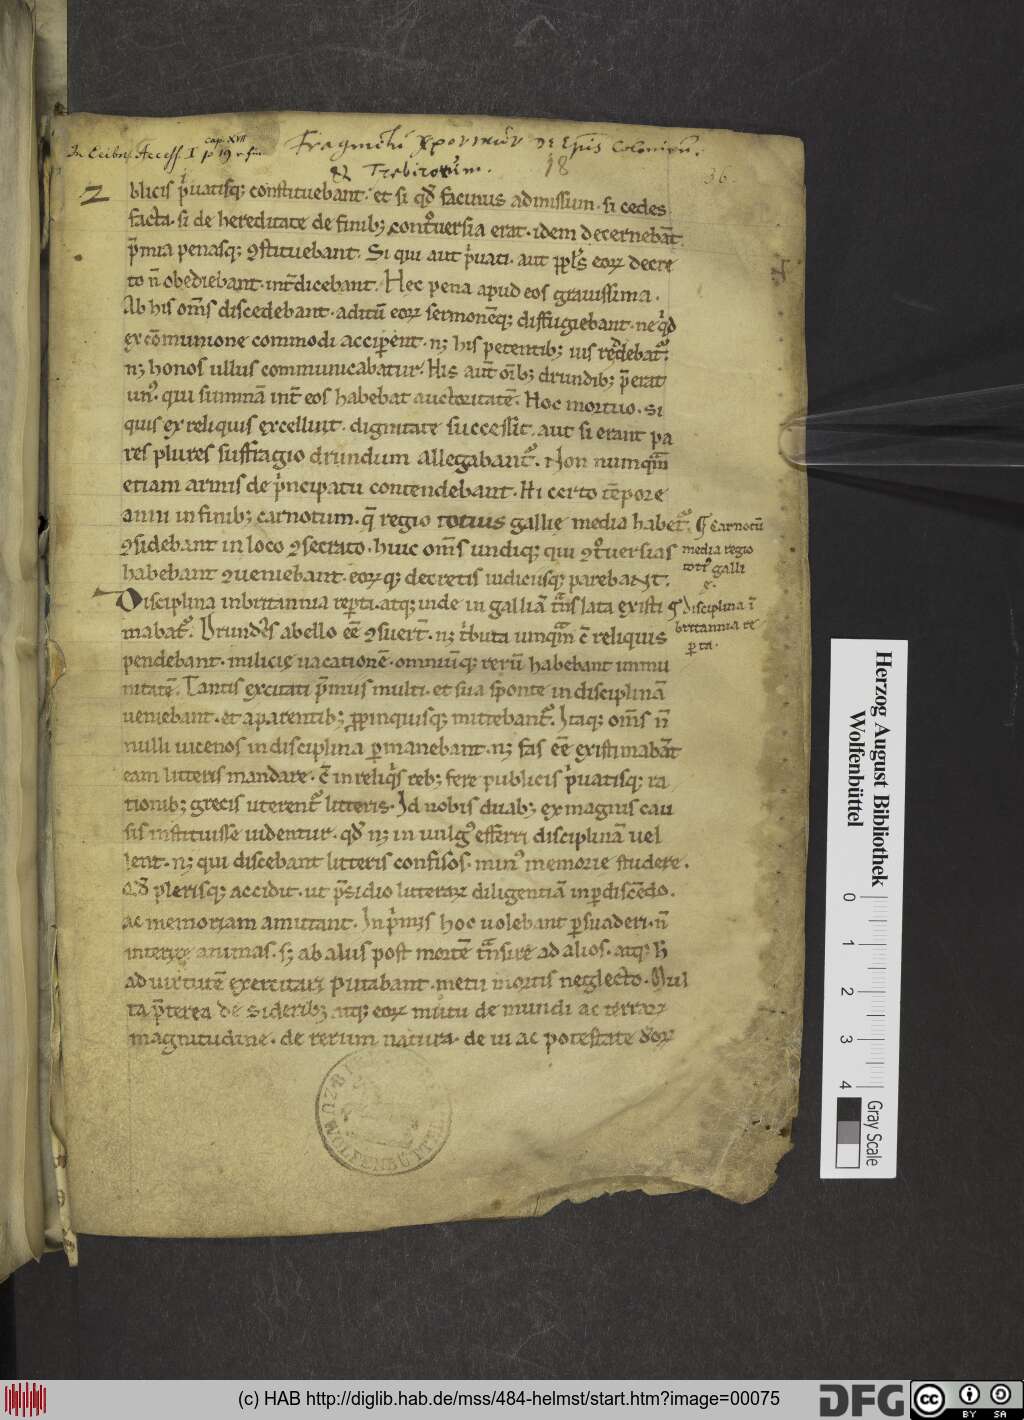 In Leibn. Access. I p 19 cap. XVII
Fragmētū xpor mūr De Epīs Coloniēn.
et Trebirorūm.
18
36.
2
blicis p̍uatisq; constituebant· et si qđ facinus admissum· si cedes
facta· si de hereditate de finib; cont̾uersia erat· idem decernebāt
p̄mia penasq; ꝯstituebant. Si qui aut p̍uati· aut ꝓpl̄s eoꝝ decre
to ñ obediebant· int̄dicebant. Hec pena apud eos grauissima.
Ab his om̄s discedebant· aditū eoꝝ sermonēq; diffugiebant· ne q̍d
ex cōmunione commodi acciperent· nꝫ his petentib; ius reddebat̾.
nꝫ honos ullus communicabatur. His aut̄ om̄ib; druidib; p̄erat
un᾽· qui summā int̄ eos habebat auctoritatē. Hoc mortuo· si
quis ex reliquis excelluit· dignitate successit· aut si erant pa
res plures suffragio druidum allegabant̾. Non numqᷓm
etiam armis de p̍ncipatu contendebant. Hi certo tēpore
anni in finib; carnotum· q̄ regio totius gallie media habet̾.
ꝯsidebant in loco ꝯsecrato· huic om̄s undiq; qui ꝯt̾uersias
habebant ꝯueniebant· eoꝝq; decretis iudiciisq; parebant.
Disciplina in britannia reꝑti· atq; inde in galliā tᷓnslata existi
mabat̾. Druides abello eē ꝯsuert̄· nꝫ t̍buta umqᷓm c̄ reliquis
pendebant· milicię uacationē· omniūq; rerū habebant immu
nitatē. Tantis excitati p̄miis multi· et sua sponte in disciplinā
ueniebant· et a parentib; ꝓpinquisq; mittebant̾. Itaq; om̄s ñ
nulli uicenos in disciplina ꝑmanebant· nꝫ fas eē existimabāt
eam litteris mandare· c̄ in reliq̍s reb; fere publicis p̍uatisq; ra
tionib; grecis uterent̾ litteris. Id nobis duab; ex magnis cau
sis instituisse uidentur· qđ nꝫ in uulg᾽ efferri disciplinā uel
lent· nꝫ qui discebant litteris confisos· min᾽ memorie studere.
Qđ plerisq; accidit· ut p̄sidio litteraꝝ diligentiā in ꝑdiscēdo.
ac memoriam amittant. In p̍mis hoc uolebant ꝑsuaderi· ñ
interire animas· sꝫ ab aliis post mortē tᷓnsire ad alios· atq; h̄
ad uirtutē exercitari putabant· metu mortis neglecto. Mul
ta p̄terea de siderib; atq; eoꝝ motu de mundi ac terraꝝ
magnitudine· de rerum natura· de ui ac potestate deoꝝ
¶ Carnotū
media regio
toti᾽ galli
ę.
¶ Disciplina ī
britannia re
ꝑta.
WOLFENBÜTTEL
Herzog August Bibliothek
Wolfenbüttel
0 1 2 3 4
Gray Scale
(c) HAB http://diglib.hab.de/mss/484-helmst/start.htm?image=00075
DFG
cc BY SA